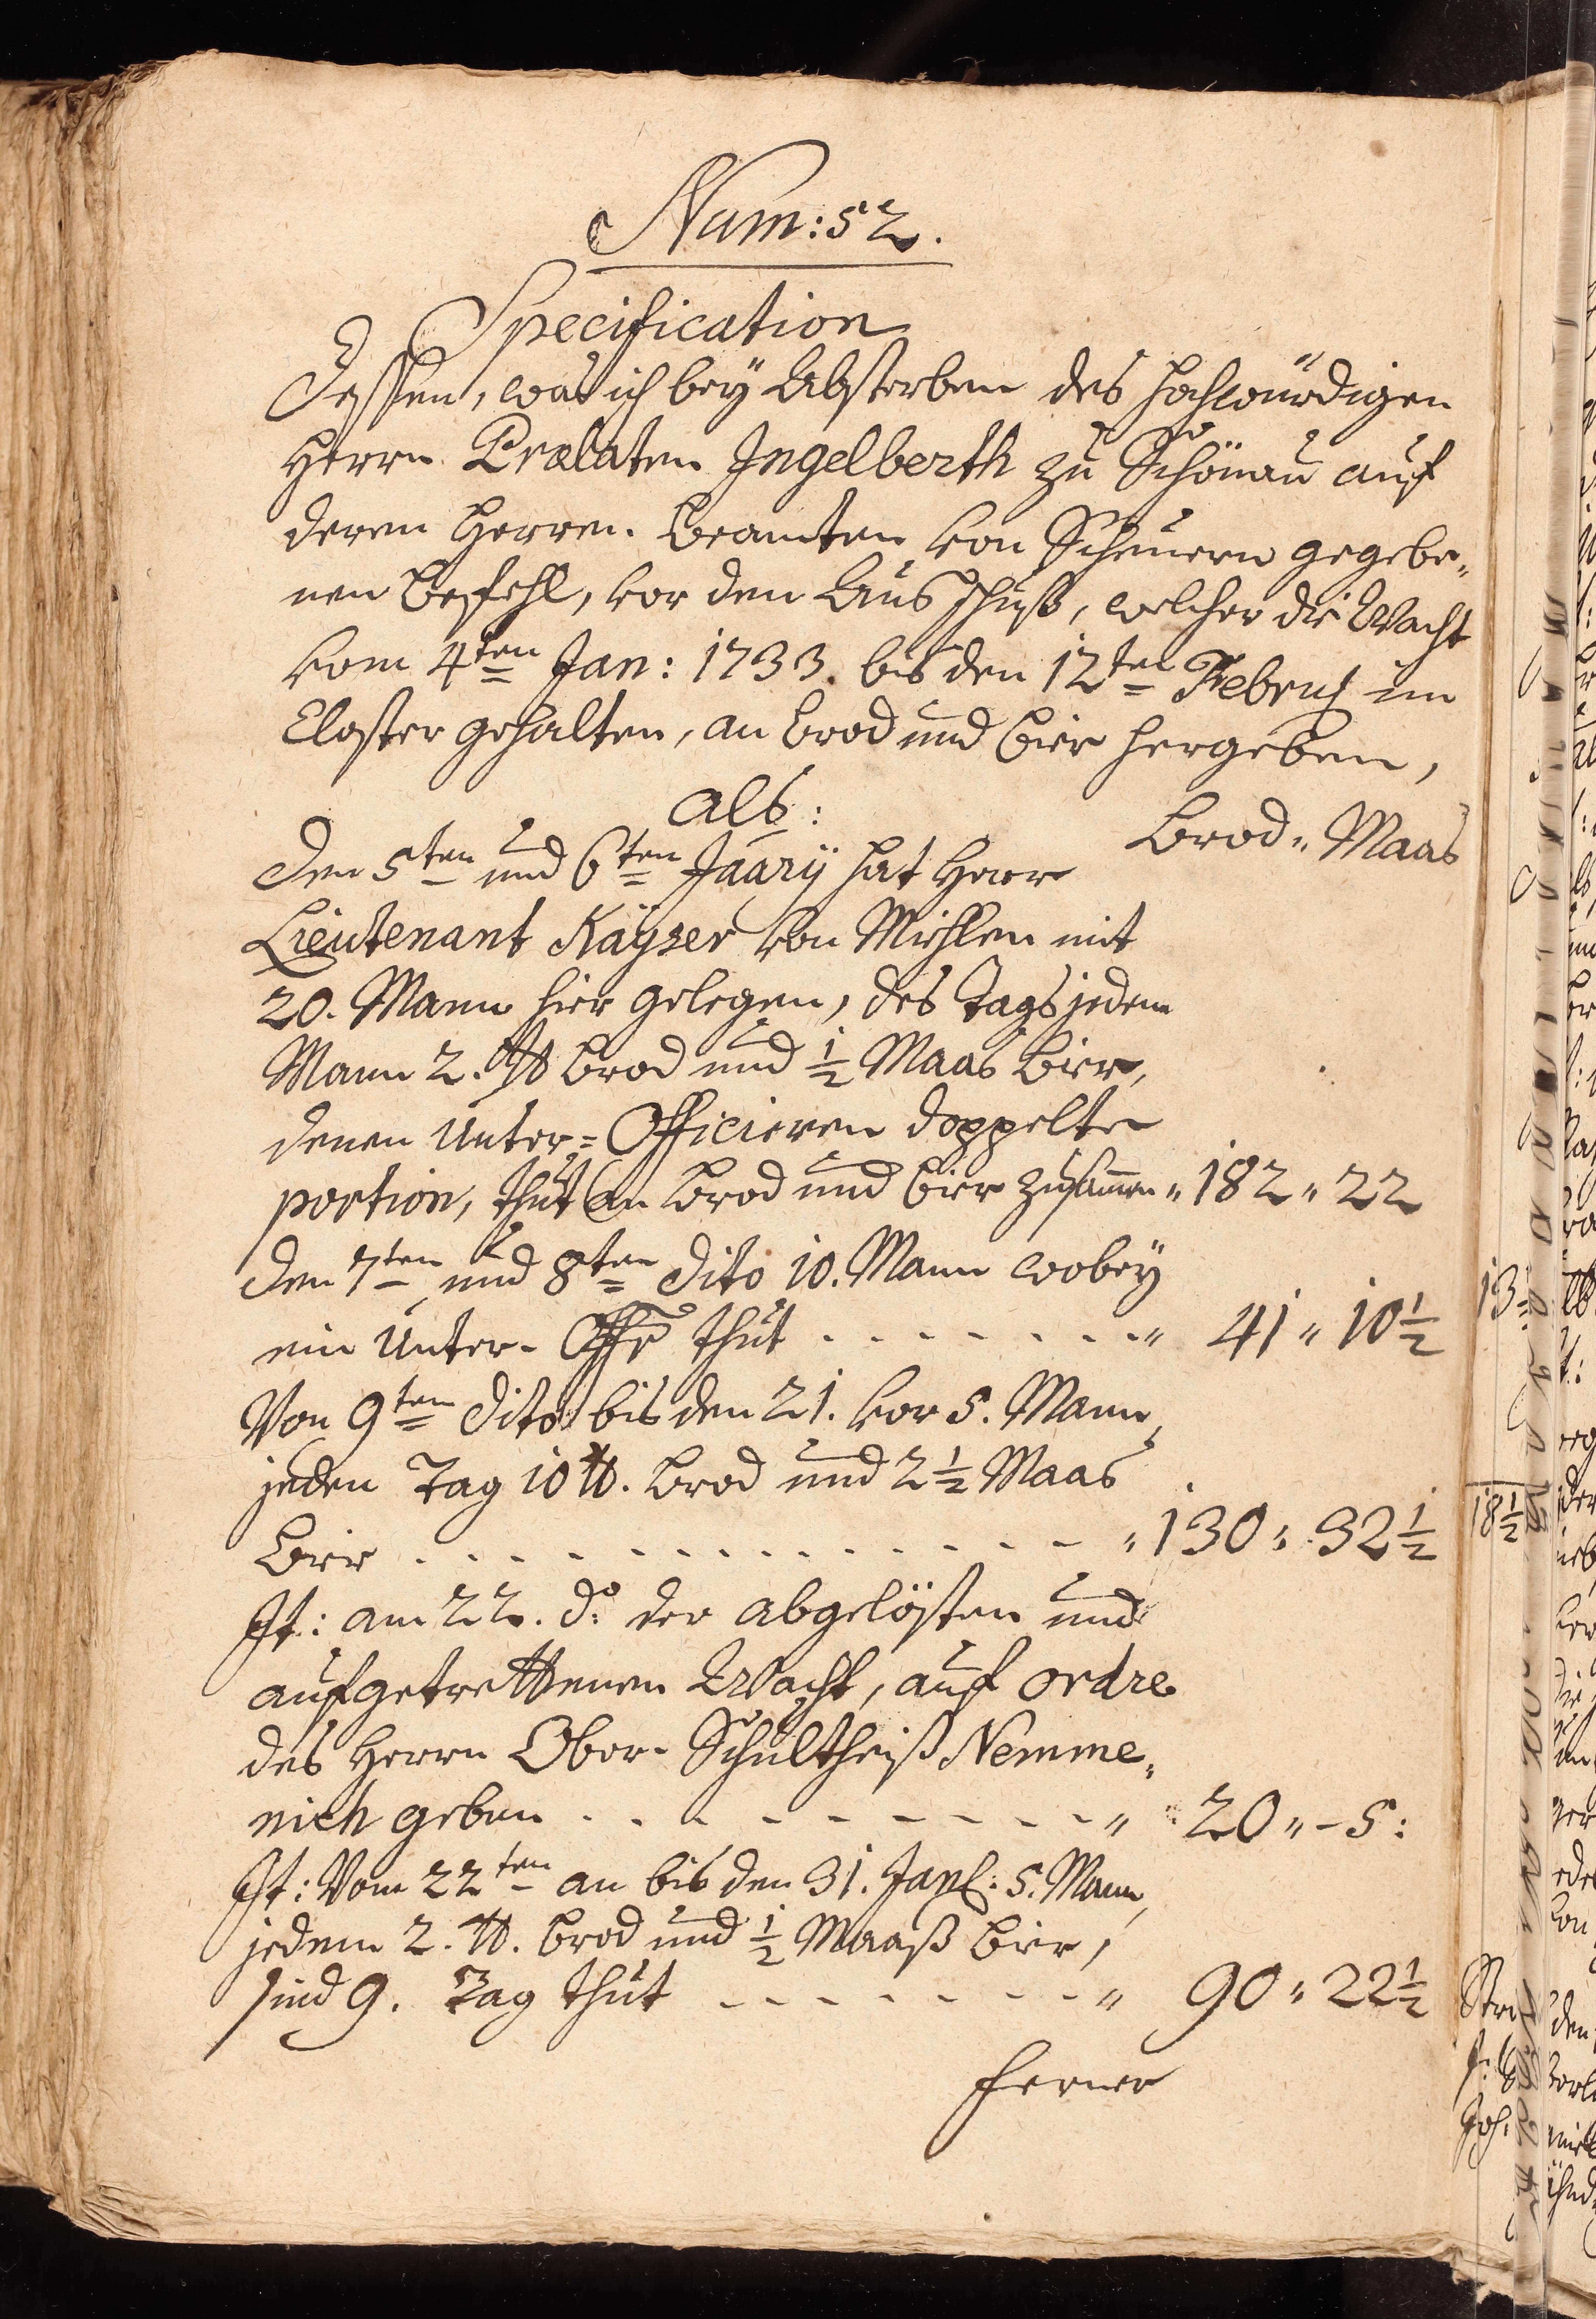 Num: 52.
Specification
Dessen, was ich beÿ Absterben des Hochwürdigen
Herrn Prælaten Ingelberth zu Schönau auf
deren Herren Beamten von Scheuern gegebe„
nen Befehl, vor den Ausschuß, welcher die Wacht
vom 4ten Jan: 1733. bis den 12ten Febru im
Closter gehalten, an Brod und Bier hergeben,
Als:
Brod „ Maas
Den 5ten und 6ten Jäarÿ hat Herr
Lieutenant Kaÿser von Miehlen mit
20. Mann hier gelegen, des Tags jedem
Mann 2. ℔ Brod und ½ Maas Bier,
denen Unter=Officieren doppelte
portion, thut an Brod und Bier zusamen „ 182 „ 22
Den 7ten und 8ten Dito 10. Mann wobeÿ
ein Unter- Offr thut - - - - - - - - „ 41 „ 10½
Von 9ten Dito bis den 21. vor 5. Mann,
jeden Tag 10 ℔. Brod und 2½ Maas
Bier - - - - - - - - - - - - - - - „ 130 „ 32½
It: am 22. do der abgelösten und
aufgetrettenen Wacht, auf ordre
des Herrn Ober- Schultheiß Nemme„
nich geben - - - - - - - - - - „ 20 „ - 5:
It: Vom 22ten an bis den 31. Jan: 5. Mann,
jedem 2. ℔. Brod und ½ Maaß Bier,
sind 9. Tag thut - - - - - - - - „ 90 „ 22½
Ferner